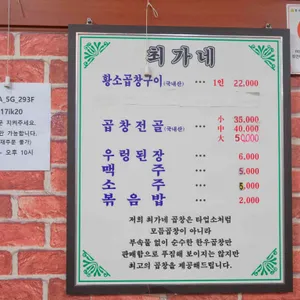 최가네
황소곱창구이(국내산) ··· 1인 22,000
곱창전골(국내산) ··· 小 35,000
中 40,000
大 50,000
우렁된장 ··· 6,000
맥주 ··· 5,000
소주 ··· 5,000
볶음밥 ··· 2,000
저희 최가네 곱창은 타업소처럼
모듬곱창이 아니라
부속물 없이 순수한 한우곱창만
판매함으로 푸짐해 보이지는 않지만
최고의 곱창을 제공해드립니다.
A_SG_293F
17lk20
지켜주세요.
가능합니다.
오후 10시